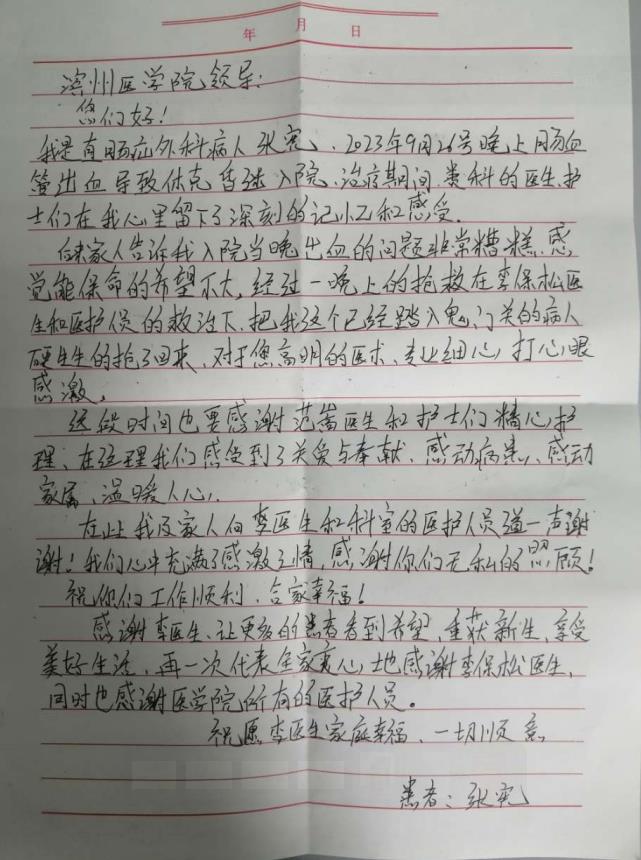 年 月 日
滨州医学院领导:
您们好!
我是胃肠疝外科病人张宪、2023年9月26号晚上肠血
管出血导致休克昏迷入院、治疗期间、贵科的医生、护
士们在我心里留下了深刻的记忆和感受.
听家人告诉我入院当晚出血的问题非常糟糕、感
觉能保命的希望不大,经过一晚上的抢救在李保松医
生和医护人员的救治下、把我这个已经踏入鬼门关的病人
硬生生的抢了回来、对于您高明的医术、专业细心、打心眼
感激。
这段时间也要感谢范嵩医生和护士们精心护
理、在这理我们感受到了关爱与奉献、感动病患、感动
家属、温暖人心.
在此我及家人向李医生和科室的医护人员道一声谢
谢!我们心中充满了感激之情、感谢你们无私的照顾!
祝你们工作顺利、合家幸福!
感谢李医生、让更多的患者看到希望、重获新生、享受
美好生活、再一次代表全家衷心地感谢李保松医生,
同时也感谢医学院所有的医护人员。
祝愿李医生家庭幸福、一切顺意
患者:张宪